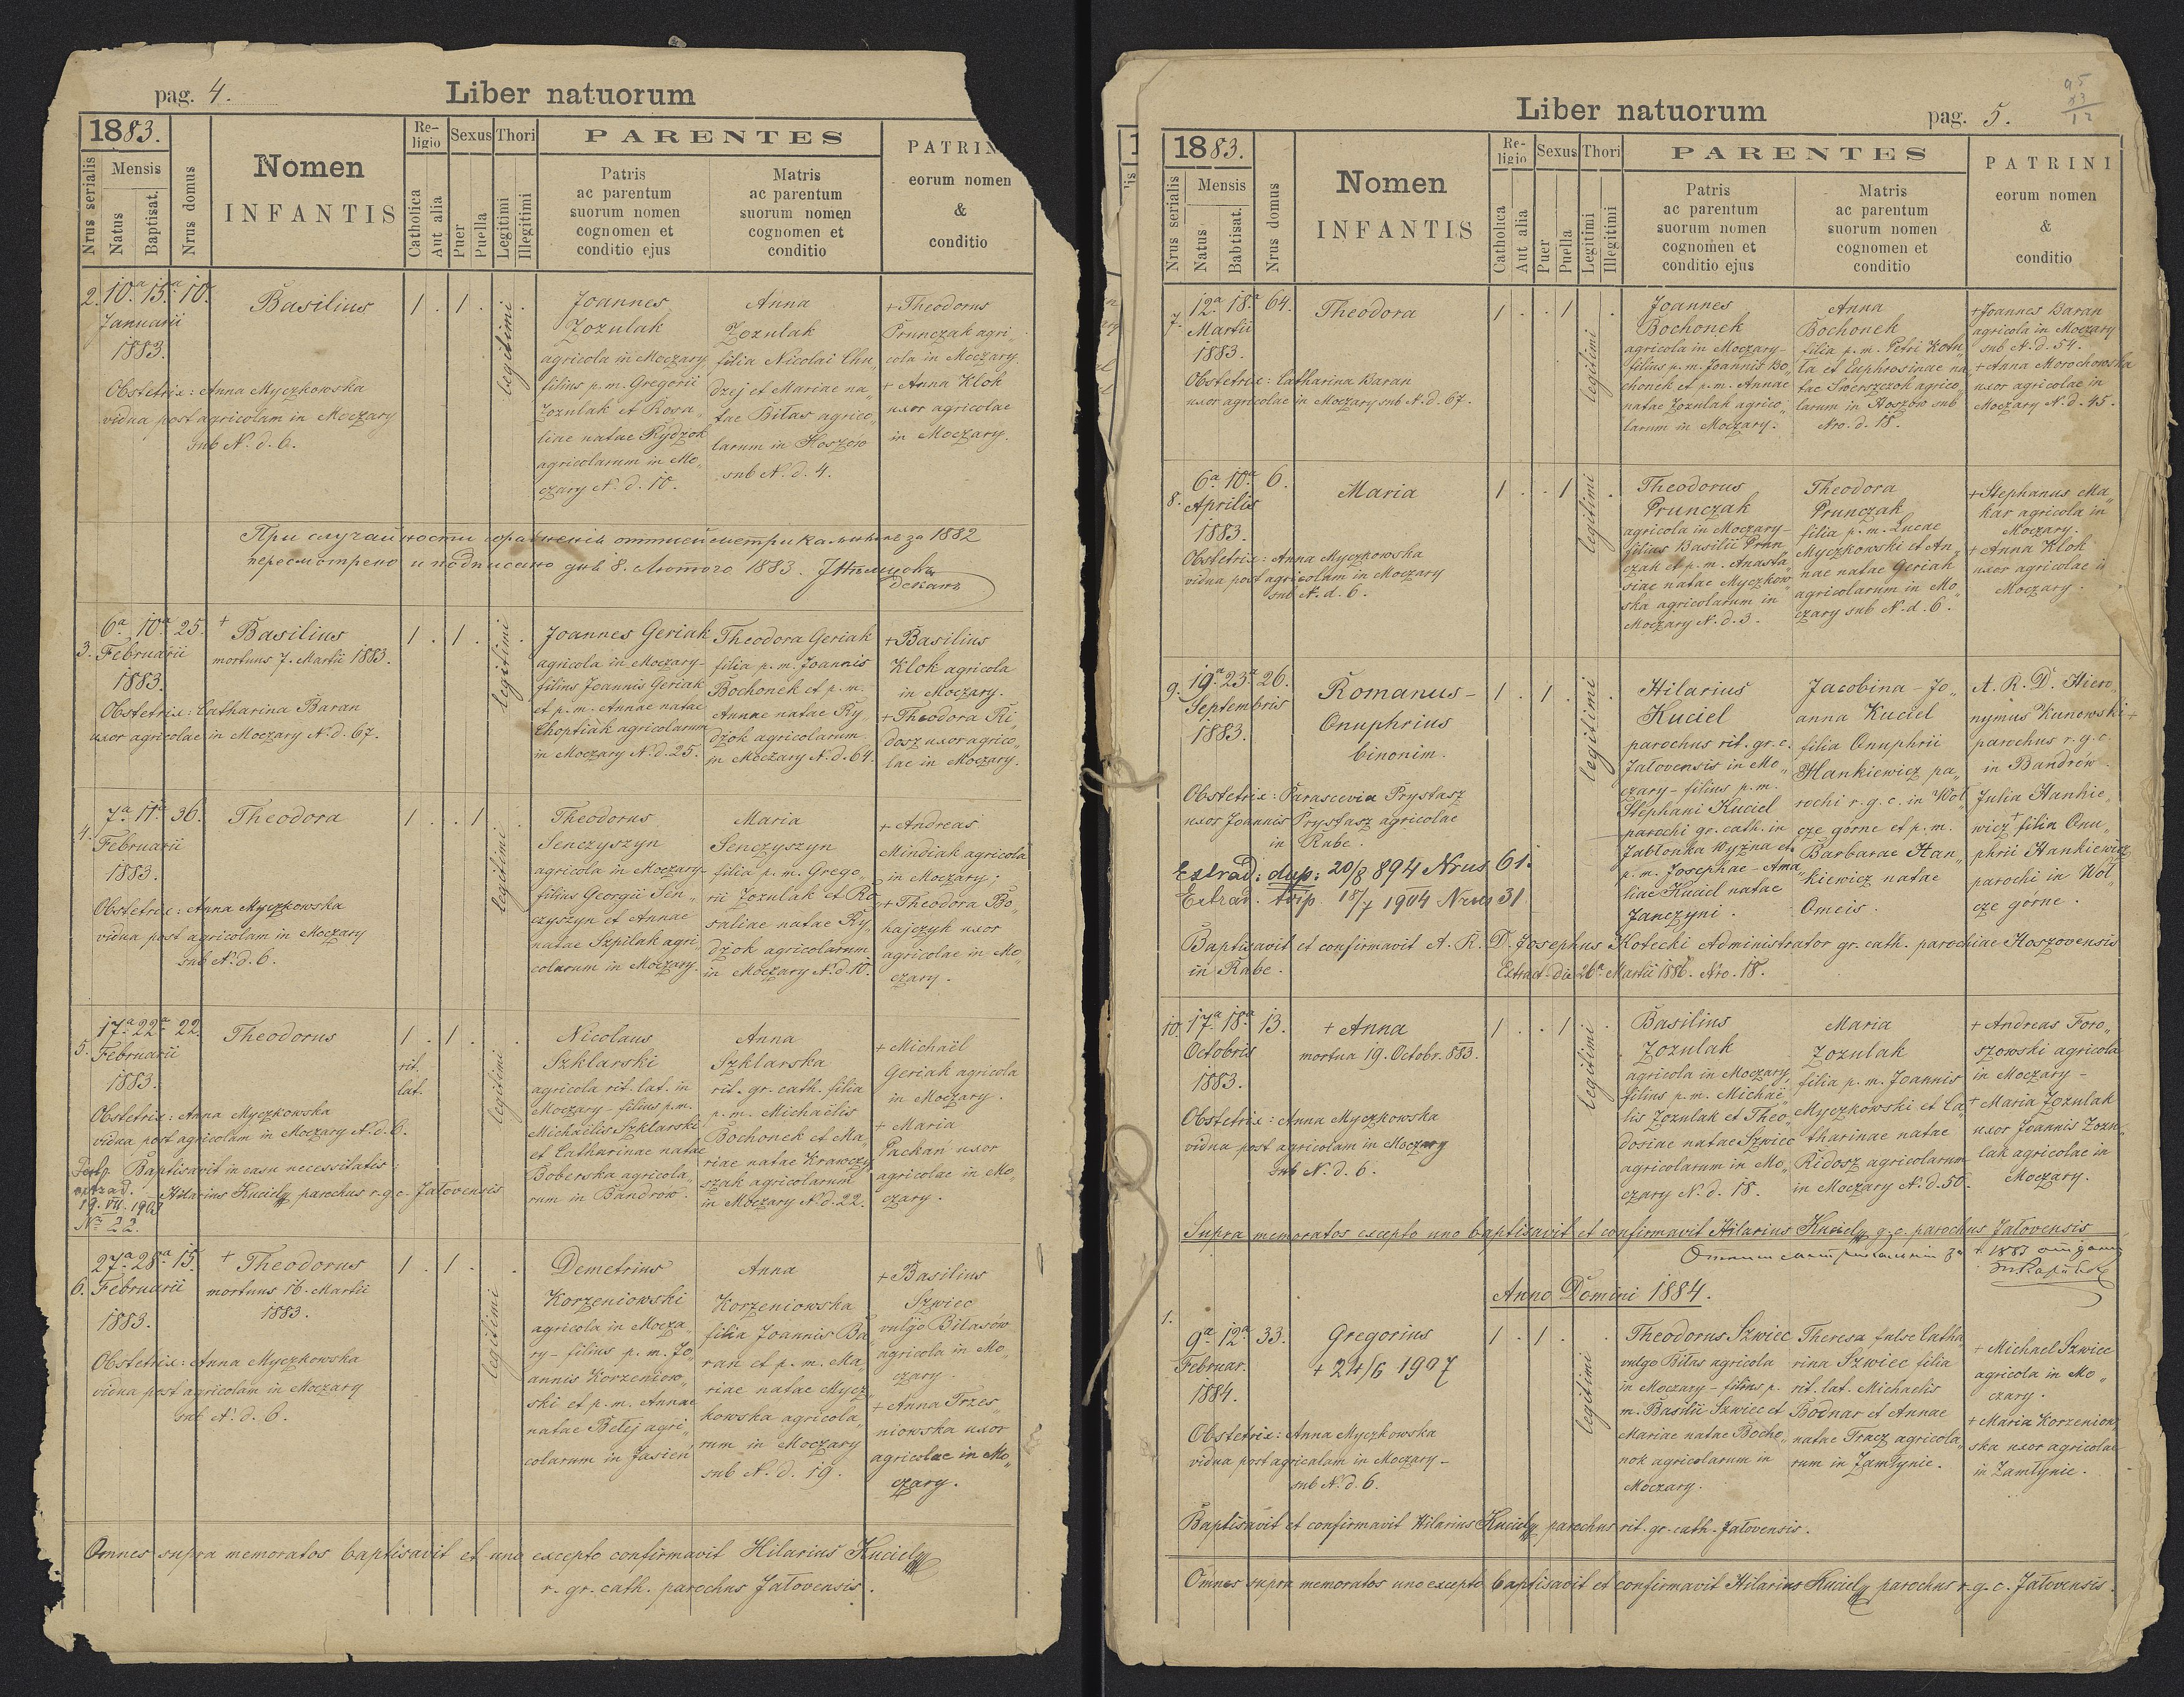 pag. 4.
Liber natuorum
1883.
Nrus serialis
Mensis
Natus
Baptisat.
Nrus domus
Nomen
INFANTIS
Re-
ligio
Catholica
Aut alia
Sexus
Puer
Puella
Thori
Legitimi
Illegitimi
PARENTES
Patris
ac parentum
suorum nomen
cognomen et
conditio ejus
Matris
ac parentum
suorum nomen
cognomen et
conditio
PATRIN
eorum nomen
&
conditio
2. 10.a 15.a 10.
Januarii
1883.
Basilius
1 . 1 . legitimi .
Obstetrix: Anna Myczkowska
vidua post agricolam in Moczary
sub N. d. 6.
Joannes
Zozulak
agricola in Moczary
filius p. m. Gregorii
Zozulak et Rosa„
liae natae Rydzok
agricolarum in Mo„
czary N. d. 10.
Anna
Zozulak
filia Nicolai Chu„
dzej et Mariae na„
tae Bilas agrico„
larum in Hoszow
sub N. d. 4.
+ Theodorus
Prunczak agri„
cola in Moczary.
+ Anna Klok
uxor agricolae
in Moczary.
При случайности за 1882
пересмотрено и подписано дня 8. Лютого 1883.
Деканъ
3. 6a 10a 25.
Februarii
1883.
+ Basilius
mortuus 7. Martii 1883.
1 . 1 . legitimi .
Obstetrix: Catharina Baran
uxor agricolae in Moczary N. d. 67.
Joannes Geriak
agricola in Moczary-
filius Joannis Geriak
et p. m. Annae natae
Choptiak agricolarum
in Moczary N. d. 25.
Theodora Geriak
filia p. m. Joannis
Bochonek et p. m.
Annae natae Ry
dzok agricolarum
in Moczary N. d. 64.
+ Basilius
Klok agricola
in Moczary.
+ Theodora Ri„
dosz uxor agrico„
lae in Moczary.
4. 7a 11a 36.
Februarii
1883.
Theodora
1 . . 1 legitimi .
Obstetrix: Anna Myczkowska
vidua post agricolam in Moczary
sub N. d. 6.
Theodorus
Senczyszyn
agricola in Moczary-
filius Georgii Sen„
czyszyn et Annae
natae Szpilak agri„
colarum in Moczary.
Maria
Senczyszyn
filia p. m. Grego„
rii Zozulak et Ro„
saliae natae Ry„
dzok agricolarum
in Moczary N. d. 10.
+ Andreas
Mindiak agricola
in Moczary;
+ Theodora Bo„
hajczyk uxor
agricolae in Mo„
czary.
5. 17a 22a 22.
Februarii
1883.
Theodorus
1 . 1 . legitimi .
rit.
lat.
Obstetrix: Anna Myczkowska
vidua post agricolam in Moczary N. d. 6.
Baptisavit in casu necessitatis
Hilarius Kuciel parochus r. g. c. Jałovensis
extrad.
19. VII. 1903
No 22.
Nicolaus
Szklarski
agricola rit. lat. in
Moczary - filius p. m.
Michaëlis Szklarski
et Catharinae natae
Boberska agricola„
rum in Bandrow.
Anna
Szklarska
rit. gr. cath. filia
p. m. Michaëlis
Bochonek et Ma„
riae natae Krawczy„
szak agricolarum
in Moczary N. d. 22.
+ Michaël
Geriak agricola
in Moczary.
+ Maria
Packan uxor
agricolae in Mo„
czary.
6. 27a 28a 15.
Februarii
1883.
+ Theodorus
mortuus 16. Martii
1883.
1 . 1 . legitimi .
Obstetrix: Anna Myczkowska
vidua post agricolam in Moczary
sub N. d. 6.
Demetrius
Korzeniowski
agricola in Mocza„
ry - filius p. m. Jo„
annis Korzeniow„
ski et p. m. Annae
natae Betej agri„
colarum in Jasień
Anna
Korzeniowska
filia Joannis Ba„
ran et p. m. Ma„
riae natae Mycz„
kowska agricola„
rum in Moczary
sub N. d. 19.
+ Basilius
Szwiec
vulgo Bilasow
agricola in Mo„
czary.
+ Anna Trzes„
niowska uxor
agricolae in Mo„
czary.
Omnes supra memoratos baptisavit et uno excepto confirmavit Hilarius Kuciel
r. gr. cath. parochus Jałovensis.
Liber natuorum
pag. 5.
95
83
12
1883.
Nrus serialis
Mensis
Natus
Babtisat.
Nrus domus
Nomen
INFANTIS
Re-
ligio
Catholica
Aut alia
Sexus
Puer
Puella
Thori
Legitimi
Illegitimi
PARENTES
Patris
ac parentum
suorum nomen
cognomen et
conditio ejus
Matris
ac parentum
suorum nomen
cognomen et
conditio
PATRINI
eorum nomen
&
conditio
7. 12a 18.a 64.
Martii
1883.
Theodora
1 . . 1 legitimi .
Obstetrix: Catharina Baran
uxor agricolae in Moczary sub N. d. 67.
Joannes
Bochonek
agricola in Moczary-
filius p. m. Joannis Bo„
chonek et p. m. Annae
natae Zozulak agrico„
larum in Moczary.
Anna
Bochonek
filia p. m. Petri Kotu„
la et Euphrosinae na„
tae Swerszczok agrico„
larum in Hoszow sub
Nro. d. 18.
+ Joannes Baran
agricola in Moczary
sub N. d. 54.
+ Anna Morochowska
uxor agricolae in
Moczary N. d. 45.
8. 6a 10a 6.
Aprilis
1883.
Maria
1 . . 1 legitimi .
Obstetrix: Anna Myczkowska
vidua post agricolam in Moczary
sub N. d. 6.
Theodorus
Prunczak
agricola in Moczary-
filius Basilii Prun„
czak et p. m. Anasta„
siae natae Myczkow„
ska agricolarum in
Moczary N. d. 3.
Theodora
Prunczak
filia p. m. Lucae
Myczkowski et An„
nae natae Geriak
agricolarum in Mo„
czary sub N. d. 6.
+ Stephanus Ma„
kar agricola in
Moczary.
+ Anna Klok
uxor agricolae i
Moczary.
9. 19a 23a 26.
Septembris
1883.
Romanus-
Onuphrius
binonim.
1 . 1 . legitimi .
Obstetrix: Parascevia Prystasz
uxor Joannis Prystasz agricolae
in Rabe.
Extrad: dup: 20/8 894 Nrus 61.
Extrad. trip. 18/7 1904 Nrus 31
Hilarius
Kuciel
parochus rit. gr. c.
Jałovensis in Mo„
czary - filius p. m.
Stephani Kuciel
parochi gr. cath. in
Jabłonka wyżna et
p. m. Josephae-Ama„
liae Kuciel natae
Janczyni.
Jacobina-Jo„
anna Kuciel
filia Onuphrii
Hankiewicz pa„
rochi r. g. c. in Wol„
cze górne et p. m.
Barbarae Han„
kiewicz natae
Omeis.
A. R. D. Hiero„
nymus Kunowski +
parochus r. g. c.
in Bandrów.
Julia Hankie„
wicz + filia Onu„
phrii Hankiewicz
parochi in Wol„
cze górne.
Baptisavit et confirmavit A. R. D. Josephus Kotecki Administrator gr. cath. parochiae Hoszovensis
in Rabe.
Extract. die 26a Martii 1886. Nro. 18.
10. 17a 18a 13.
Octobris
1883.
+ Anna
mortua 19. Octobr. 883.
1 . . 1 legitimi .
Obstetrix: Anna Myczkowska
vidua post agricolam in Moczary
sub N. d. 6.
Basilius
Zozulak
agricola in Moczary,
filius p. m. Michaë„
lis Zozulak et Theo„
dosiae natae Szwiec
agricolarum in Mo„
czary N. d. 18.
Maria
Zozulak
filia p. m. Joannis
Myczkowski et Ca„
tharinae natae
Ridosz agricolarum
in Moczary N. d. 50.
+ Andreas Toro„
szowski agricola
in Moczary-
+ Maria Zozulak
uxor Joannis Zozu„
lak agricolae in
Moczary.
Supra memoratos excepto uno baptisavit et confirmavit Hilarius Kuciel g. c. parochus Jałovensis
Anno Domini 1884.
1. 9a 12a 33.
Februar.
1884.
Gregorius
+ 24/6 1907
1 . 1 . legitimi .
Obstetrix: Anna Myczkowska
vidua post agricolam in Moczary-
sub N. d. 6.
Theodorus Szwiec
vulgo Bilas agricola
in Moczary - filius p.
m. Basilii Szwiec et
Mariae natae Bocho„
nok agricolarum in
Moczary.
Theresa false Catha„
rina Szwiec filia
rit. lat. Michaelis
Bodnar et Annae
natae Tracz agricola„
rum in Zamłynie.
+ Michael Szwiec
agricola in Mo„
czary.
+ Maria Korzeniow„
ska uxor agricolae
in Zamłynie.
Baptisavit et confirmavit Hilarius Kuciel parochus rit. gr. cath. Jałovensis.
Omnes supra memoratos uno excepto baptisavit et confirmavit Hilarius Kuciel parochus r. g. c. Jałovensis.